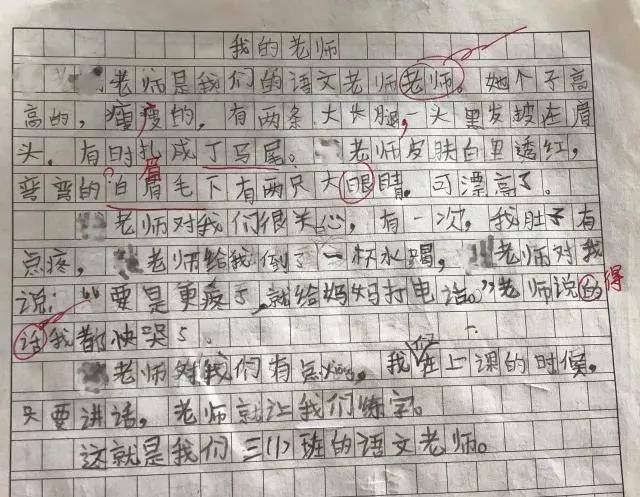 我的老师
老师是我们的语文老师老师。她个子高
高的，瘦瘦的，有两条大长腿，一头黑发披在眉
头，有时扎成丁马尾。老师皮肤白里透红，
弯弯的白眉毛下有两只大眼睛，可漂亮了。
老师对我们很关心，有一次，我肚子有
点疼，老师给我倒了一杯水喝，老师对我
说：“要是更疼了，就给妈妈打电话。”老师说的得
话我都快哭了。
老师对我们有点xiong，我们在上课的时候，
只要讲话，老师就让我们练字。
这就是我们三(1)班的语文老师。